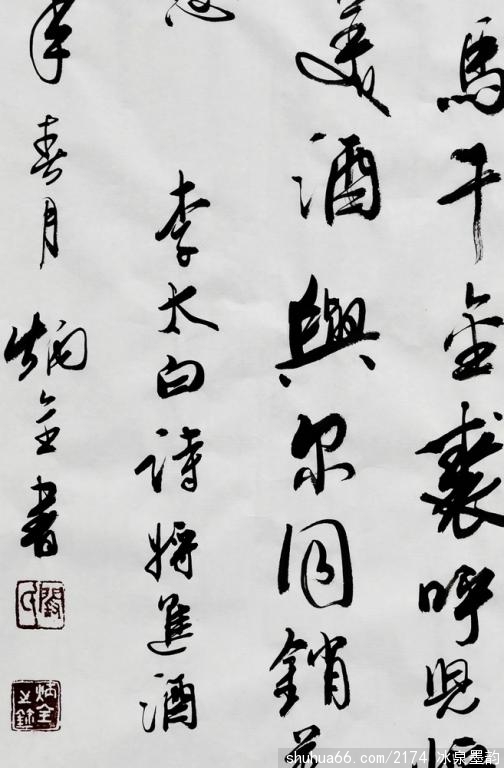 馬千金裘呼兒
美酒與尔同銷
李太白詩將進酒
年春月炳全書
閻氏
炳全
shuhua66.com/2174 冰泉墨韵